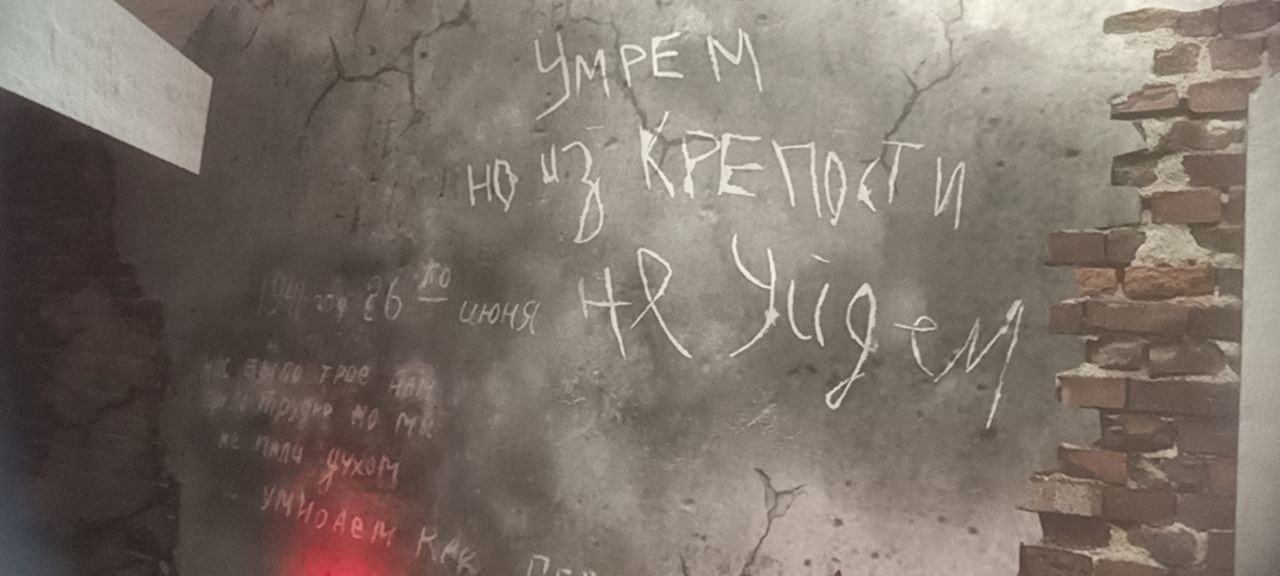 УМРЕМ
но из КРЕПОСТИ
не уйдем
1941 год 26 го июня
нас было трое нам
было трудно но мы
не пали духом
и умираем как